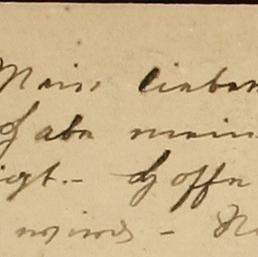 Mein lieber
Habe mein
igt. - Hoffe
wird -